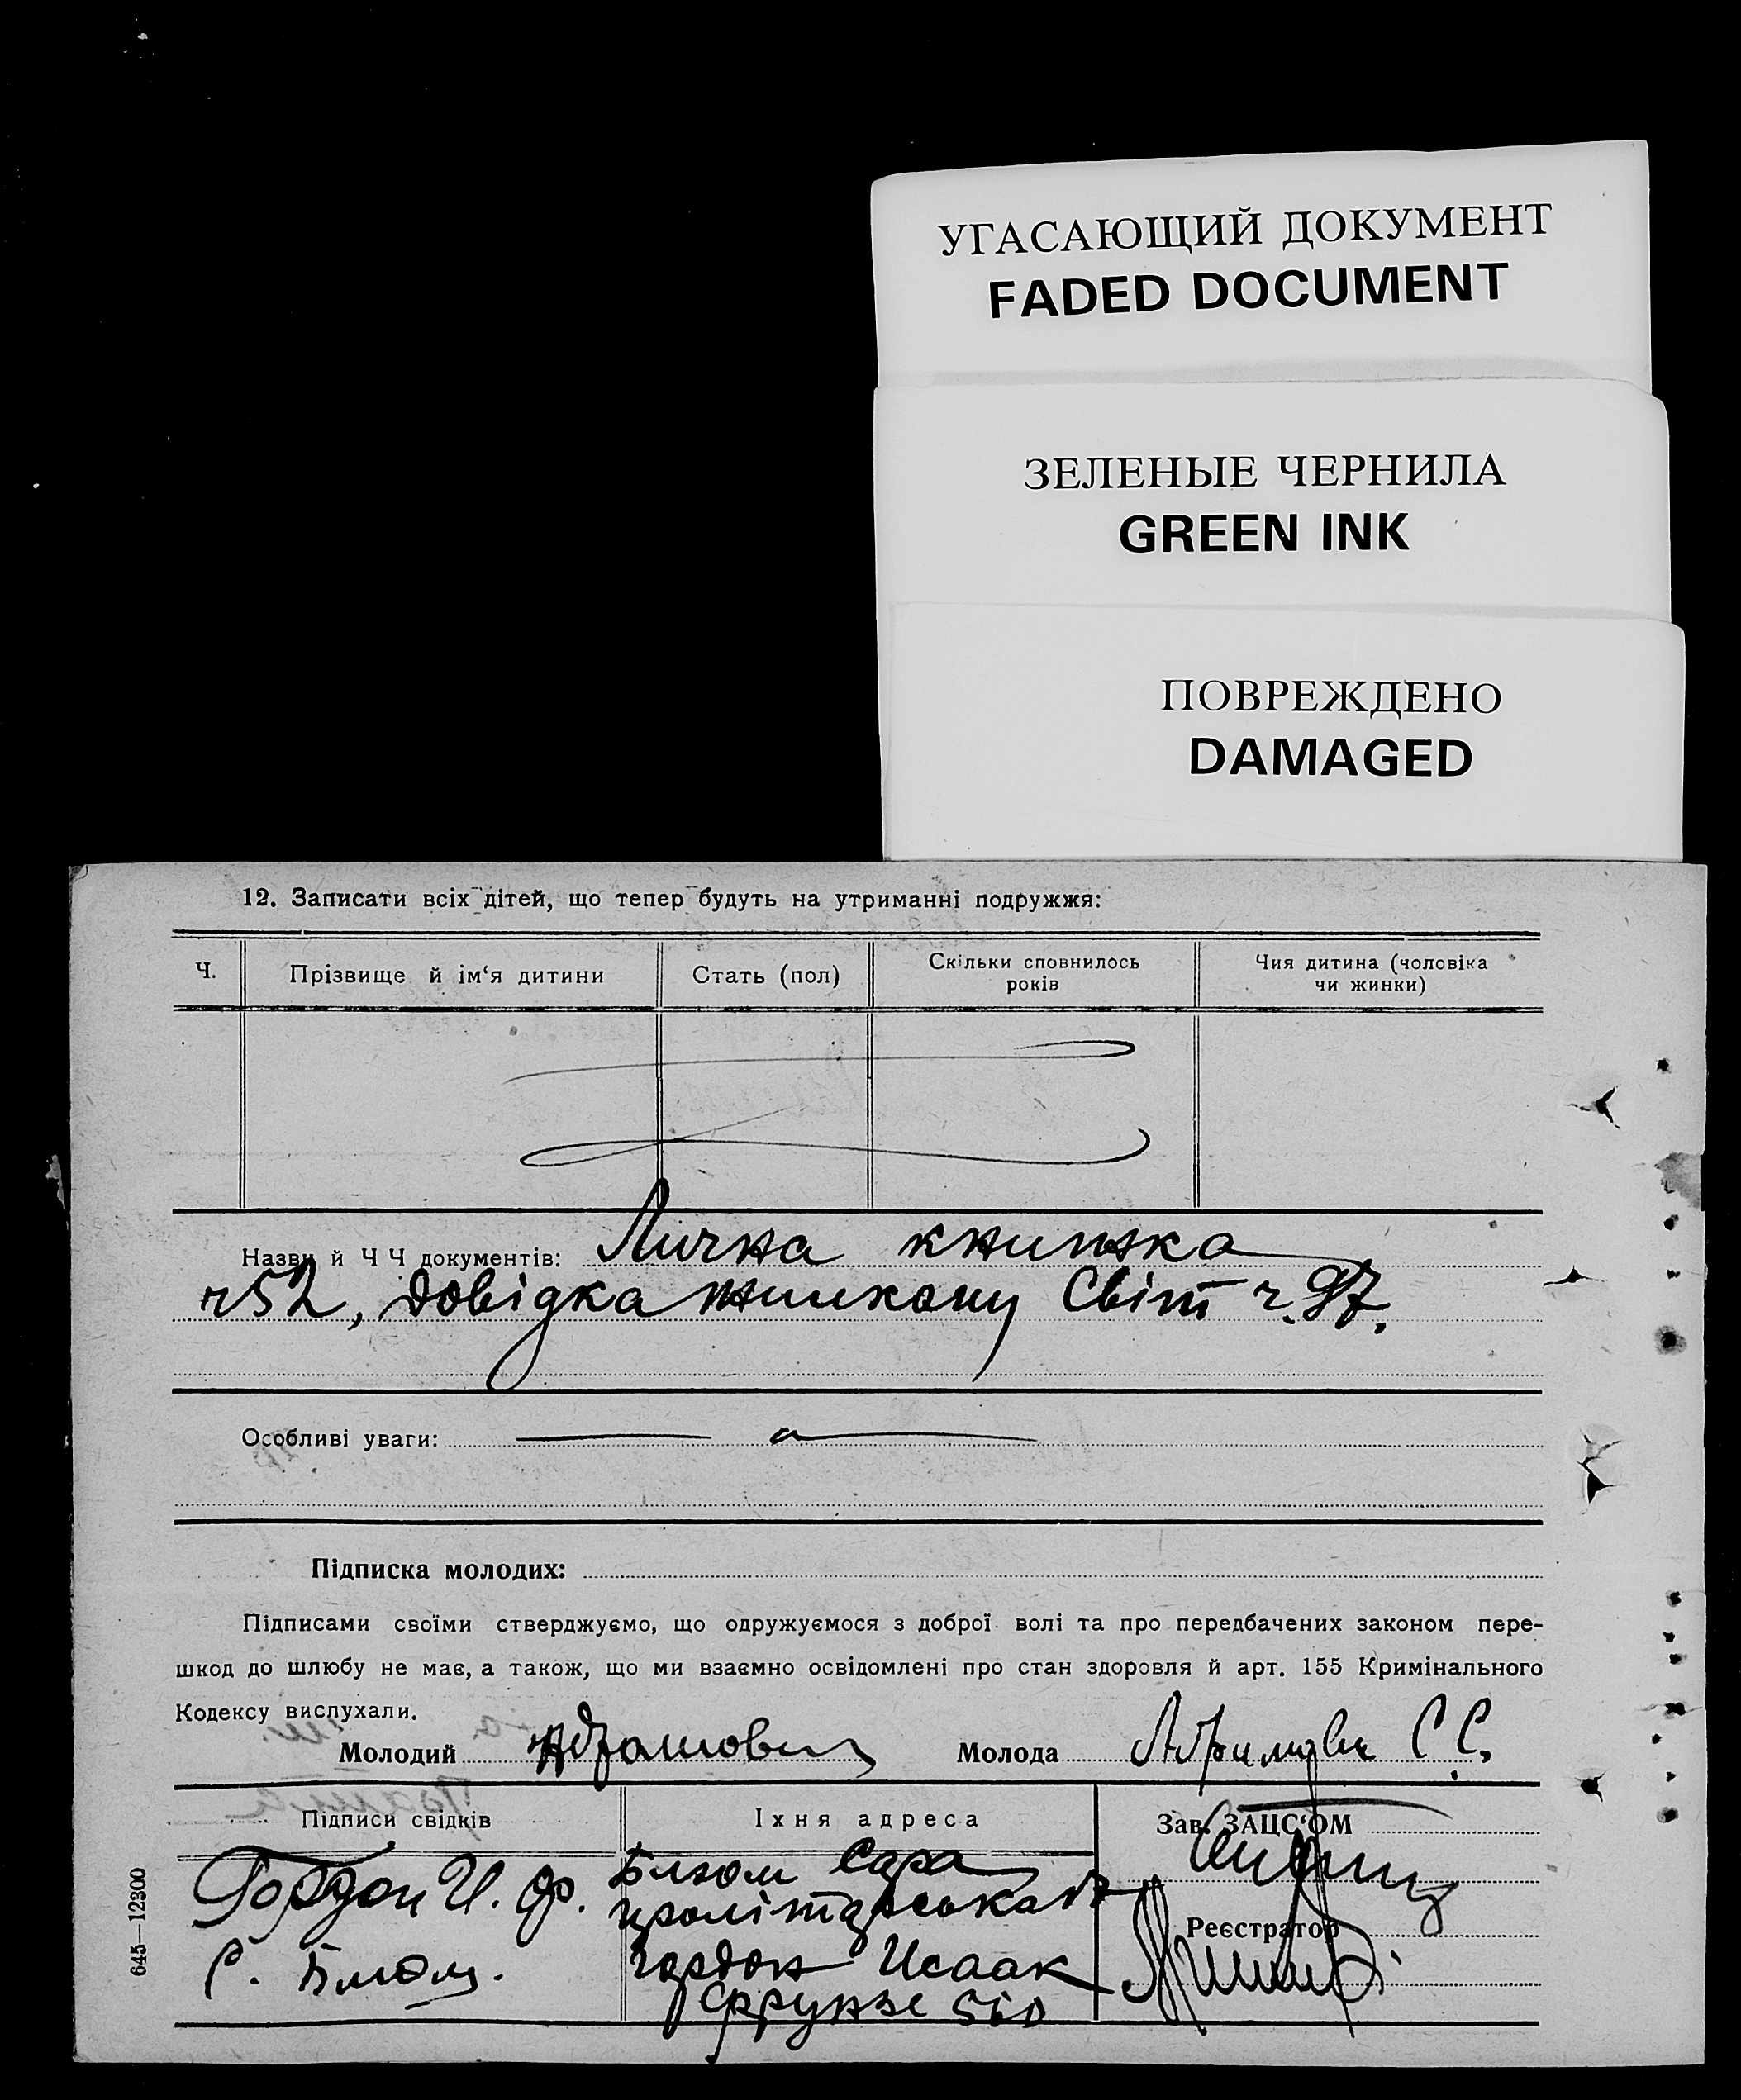 УГАСАЮЩИЙ ДОКУМЕНТ
FADED DOCUMENT
ЗЕЛЕНЫЕ ЧЕРНИЛА
GREEN INK
ПОВРЕЖДЕНО
DAMAGED
12. Записати всіх дітей, що тепер будуть на утриманні подружжя:
Ч.
Прізвище й ім‘я дитини
Стать (пол)
Скільки сповнилось
років
Чия дитина (чоловіка
чи жинки)
Назви й Ч Ч документів: Лична книжка
ч 52, довідка Світ ч. 97.
Особливі уваги:
Підписка молодих:
Підписами своїми стверджуємо, що одружуємося з доброї волі та про передбачених законом пере-
шкод до шлюбу не має, а також, що ми взаємно освідомлені про стан здоровля й арт. 155 Кримінального
Кодексу вислухали.
Молодий Абрамович Молода С С.
Підписи свідків
Їхня адреса
Зав. ЗАЦС‘ОМ
Гордон И. Ф.
Блюм Сара
С. Блюм.
Гордон Исаак
Фрунзе
Реєстратор
645—12300